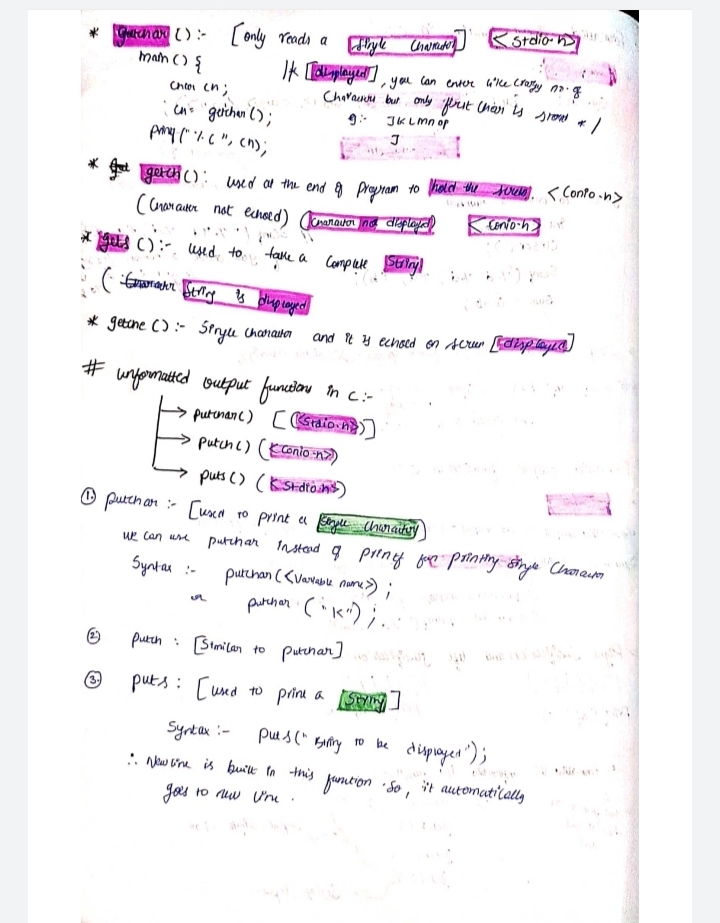 * getchar() :- [only reads a single character] <stdio.h>
main() {
/* [displayed], you can enter like crazy no. of
char ch;
Character but only first char is stored */
ch = getchar();
g:- JKLmnop
printf("%c", ch);
J
* getch() : used at the end of program to hold the screen. <conio.h>
(Character not echoed) (Character not displayed) <conio.h>
* gets() :- used to take a complete string
( String is displayed
* getche() :- Single character and it is echoed on screen [displayed]
# unformatted output functions in c :-
→ putchar() [(<stdio.h>)]
→ putch() (<conio.h>)
→ puts() (<stdio.h>)
① putchar :- [used to print a single character]
we can use putchar instead of printf for printing single character
Syntax :- putchar(<variable name>);
or putchar ("K");.
② putch : [Similar to putchar]
③ puts : [used to print a string]
Syntax :- puts("string to be displayed");
∴ New line is built in this function. So, it automatically
goes to new line.